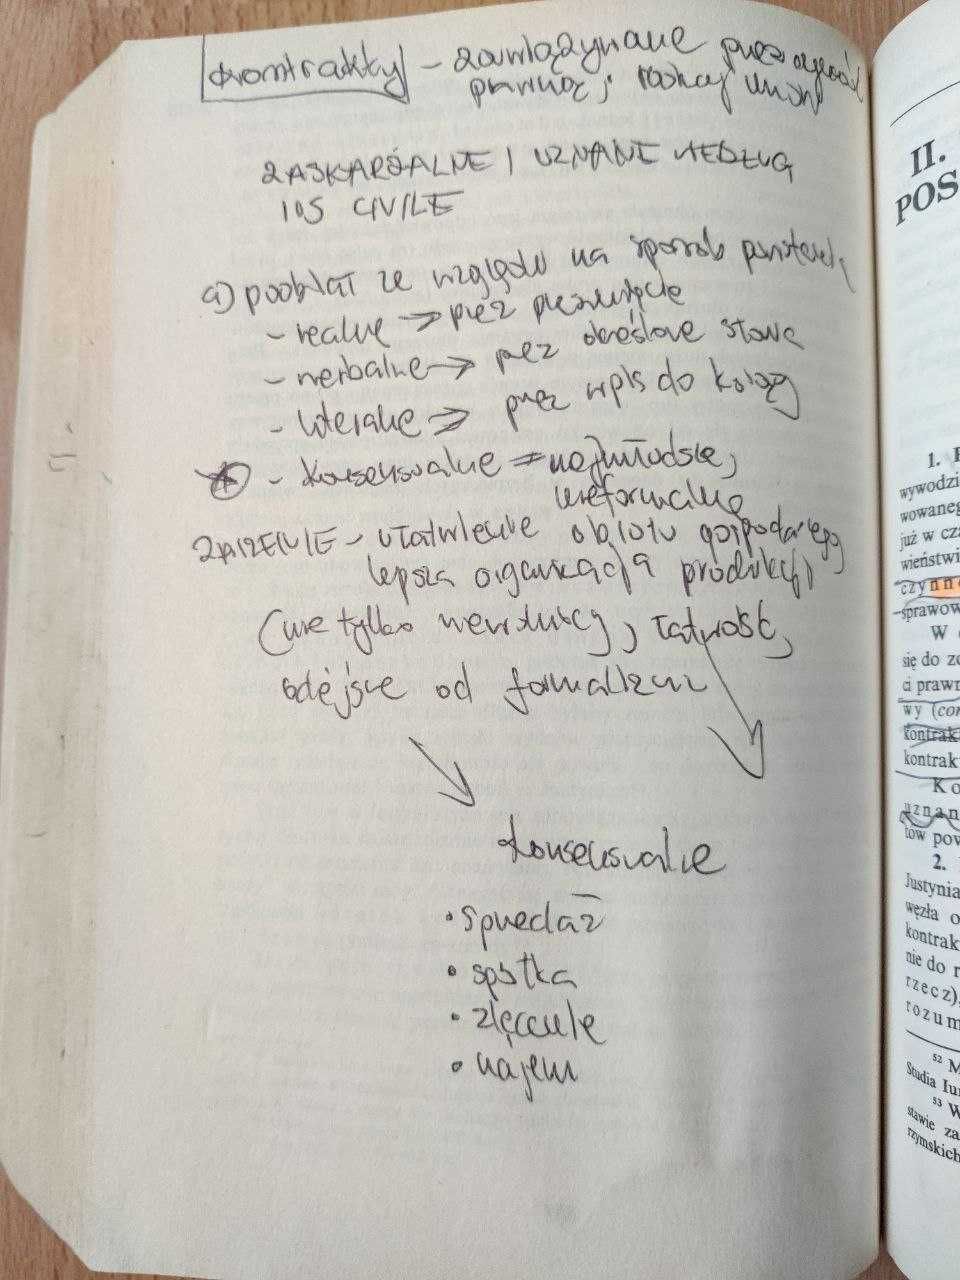 kontrakty – zawiązywane przez czynność
prawną, rodzaj umów
ZASKARŻALNE I UZNANE WEDŁUG
IUS CIVILE
a) podział ze względu na sposób powstania
- realne → przez
- werbalne → przez określone słowa
- literalne → przez wpis do księgi
- konsensualne = najmłodsze,
nieformalne
– ułatwienie obrotu gospodarczego
lepsza organizacja produkcji
(nie tylko niewolnicy, łatwość,
odejście od formalizmu
konsensualne
• sprzedaż
• spółka
• zlecenie
• najem
II.
POS
1.
wywodzi
wowaneg
już w cza
wieństwi
czynno
sprawow
W
się do zo
ci prawn
wy (con
kontrak
kontrak
Ko
uznan
tów pow
2.
Justynia
węzła o
kontrak
nie do r
rzecz),
rozum
52 M
Studia Iur
53 W
stawie za
rzymskich